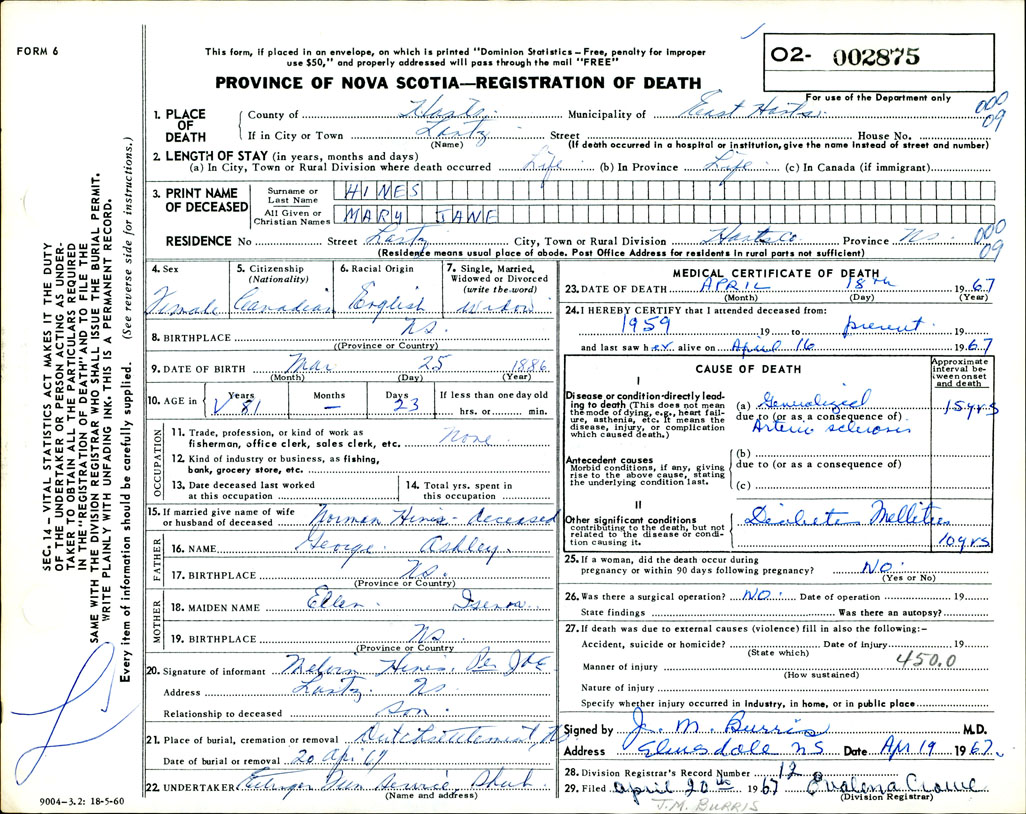 FORM 6
This form, if placed in an envelope, on which is printed "Dominion Statistics – Free, penalty for improper
use $50," and properly addressed will pass through the mail "FREE"
PROVINCE OF NOVA SCOTIA—REGISTRATION OF DEATH
O2- 002875
For use of the Department only
000
09
1. PLACE OF DEATH
County of Hants. Municipality of East Hants.
If in City or Town Lantz Street House No.
(Name) (If death occurred in a hospital or institution, give the name instead of street and number)
2. LENGTH OF STAY (in years, months and days)
(a) In City, Town or Rural Division where death occurred Life (b) In Province Life (c) In Canada (if immigrant)
3. PRINT NAME OF DECEASED
Surname or Last Name HINES
All Given or Christian Names MARY JANE
RESIDENCE No Street Lantz City, Town or Rural Division Hants Co Province NS
000
09
(Residence means usual place of abode. Post Office Address for residents in rural parts not sufficient)
4. Sex Female
5. Citizenship (Nationality) Canadian
6. Racial Origin English
7. Single, Married, Widowed or Divorced (write the word) Widow
8. BIRTHPLACE NS.
((Province or Country)
9. DATE OF BIRTH Mar 25 1886
(Month) (Day) (Year)
10. AGE in Years 81 Months — Days 23 If less than one day old
hrs. or min.
OCCUPATION
11. Trade, profession, or kind of work as
fisherman, office clerk, sales clerk, etc. None
12. Kind of industry or business, as fishing,
bank, grocery store, etc.
13. Date deceased last worked
at this occupation
14. Total yrs. spent in
this occupation
15. If married give name of wife
or husband of deceased Norman Hines - deceased
FATHER
16. NAME George Ashley.
17. BIRTHPLACE NS.
(Province or Country)
MOTHER
18. MAIDEN NAME Ellen Isenor
19. BIRTHPLACE NS
(Province or Country
20. Signature of informant Melvin Hines, Per
Address Lantz NS
Relationship to deceased Son
21. Place of burial, cremation or removal Dutch Settlement NS
Date of burial or removal 20 Apr 67
22. UNDERTAKER Ettinger Fun Service, Shub
(Name and address)
MEDICAL CERTIFICATE OF DEATH
23. DATE OF DEATH APRIL 18TH 1967
(Month) (Day) (Year)
24. I HEREBY CERTIFY that I attended deceased from:
1959 19 to present 19
and last saw her alive on April 16 1967
CAUSE OF DEATH
Approximate interval between onset and death
I
Disease or condition directly leading to death (This does not mean
the mode of dying, e.g., heart failure, asthenia, etc. It means the
disease, injury, or complication
which caused death.)
(a) Generalized 15 yrs
due to (or as a consequence of)
Arterio sclerosis
Antecedent causes
Morbid conditions, if any, giving
rise to the above cause, stating
the underlying condition last.
(b)
due to (or as a consequence of)
(c)
II
Other significant conditions
contributing to the death, but not
related to the disease or condition causing it.
Diabetes Mellitus
10 yrs
25. If a woman, did the death occur during
pregnancy or within 90 days following pregnancy? NO.
(Yes or No)
26. Was there a surgical operation? NO. Date of operation 19
State findings Was there an autopsy?
27. If death was due to external causes (violence) fill in also the following:–
Accident, suicide or homicide? Date of injury 19
(State which) 450.0
Manner of injury
(How sustained)
Nature of injury
Specify whether injury occurred in industry, in home, or in public place
Signed by J. M. Burris M.D.
Address Elmsdale NS Date Apr 19 1967
28. Division Registrar's Record Number 12
29. Filed April 20th 1967 Evalena Crowe
(Division Registrar)
J.M. BURRIS
SEC. 14 – VITAL STATISTICS ACT MAKES IT THE DUTY
OF THE UNDERTAKER OR PERSON ACTING AS UNDER-
TAKER TO OBTAIN ALL THE PARTICULARS REQUIRED
IN THE "REGISTRATION OF DEATH" AND TO FILE THE
SAME WITH THE DIVISION REGISTRAR WHO SHALL ISSUE THE BURIAL PERMIT.
WRITE PLAINLY WITH UNFADING INK. THIS IS A PERMANENT RECORD.
Every item of information should be carefully supplied. (See reverse side for instructions.)
9004–3.2: 18-5-60